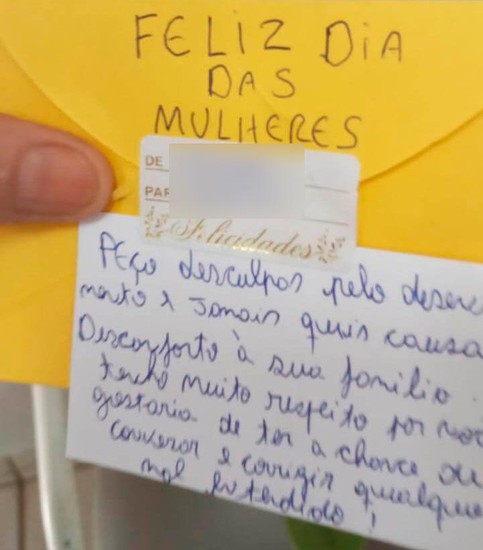 FELIZ DIA
DAS
MULHERES
DE
PAR
Felicidades
Peço desculpas pelo desen
mento e Jamais quis causa
Desconforto à sua família.
tenho muito respeito por
gostaria de ter a chance de
conversar e corrigir qualque
mal Entendido!